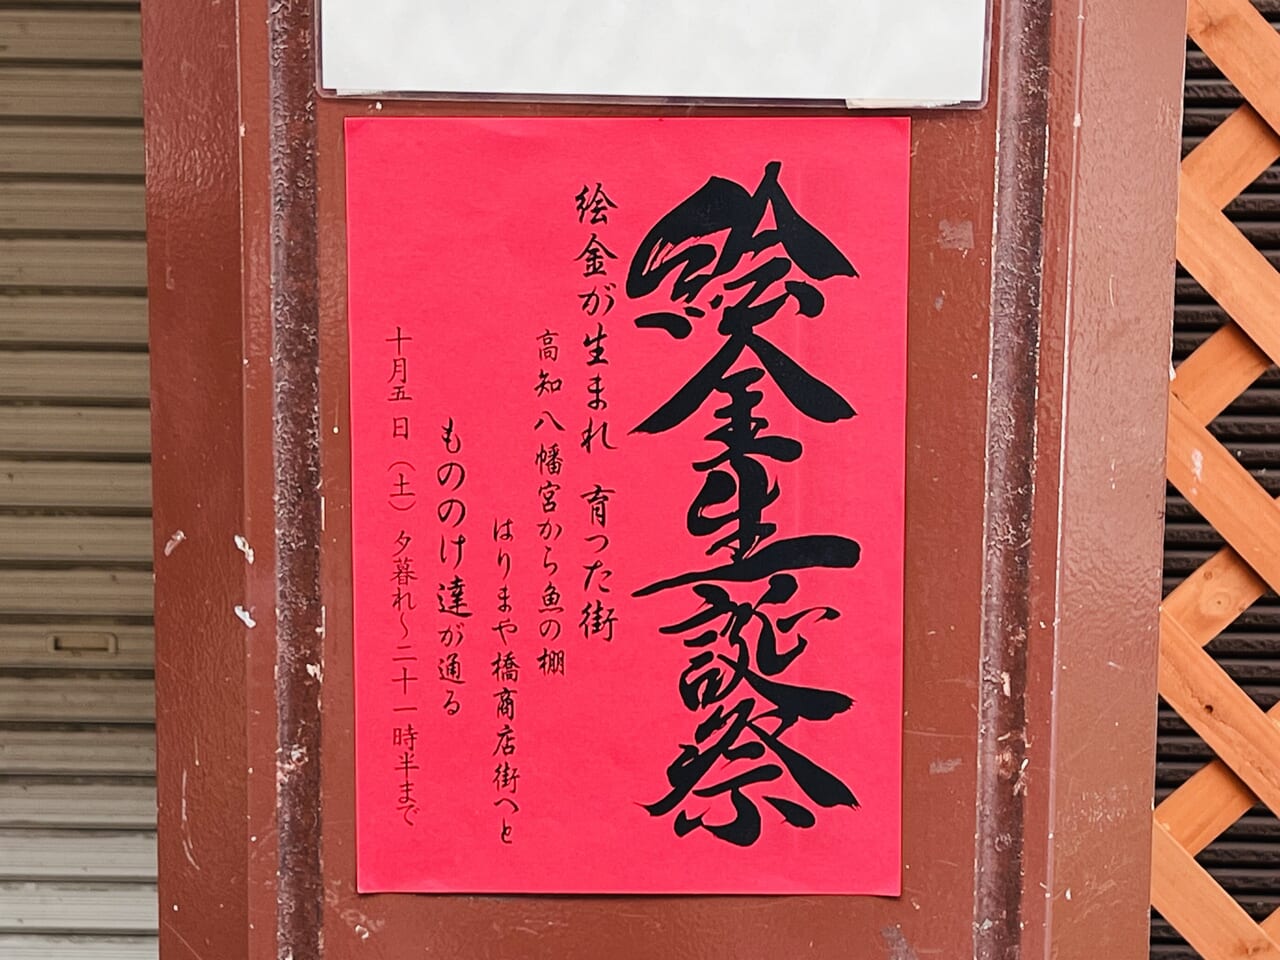 絵金生誕祭
絵金が生まれ 育った街
高知八幡宮から魚の棚
はりまや橋商店街へと
もののけ達が通る
十月五日（土）夕暮れ～二十一時半まで